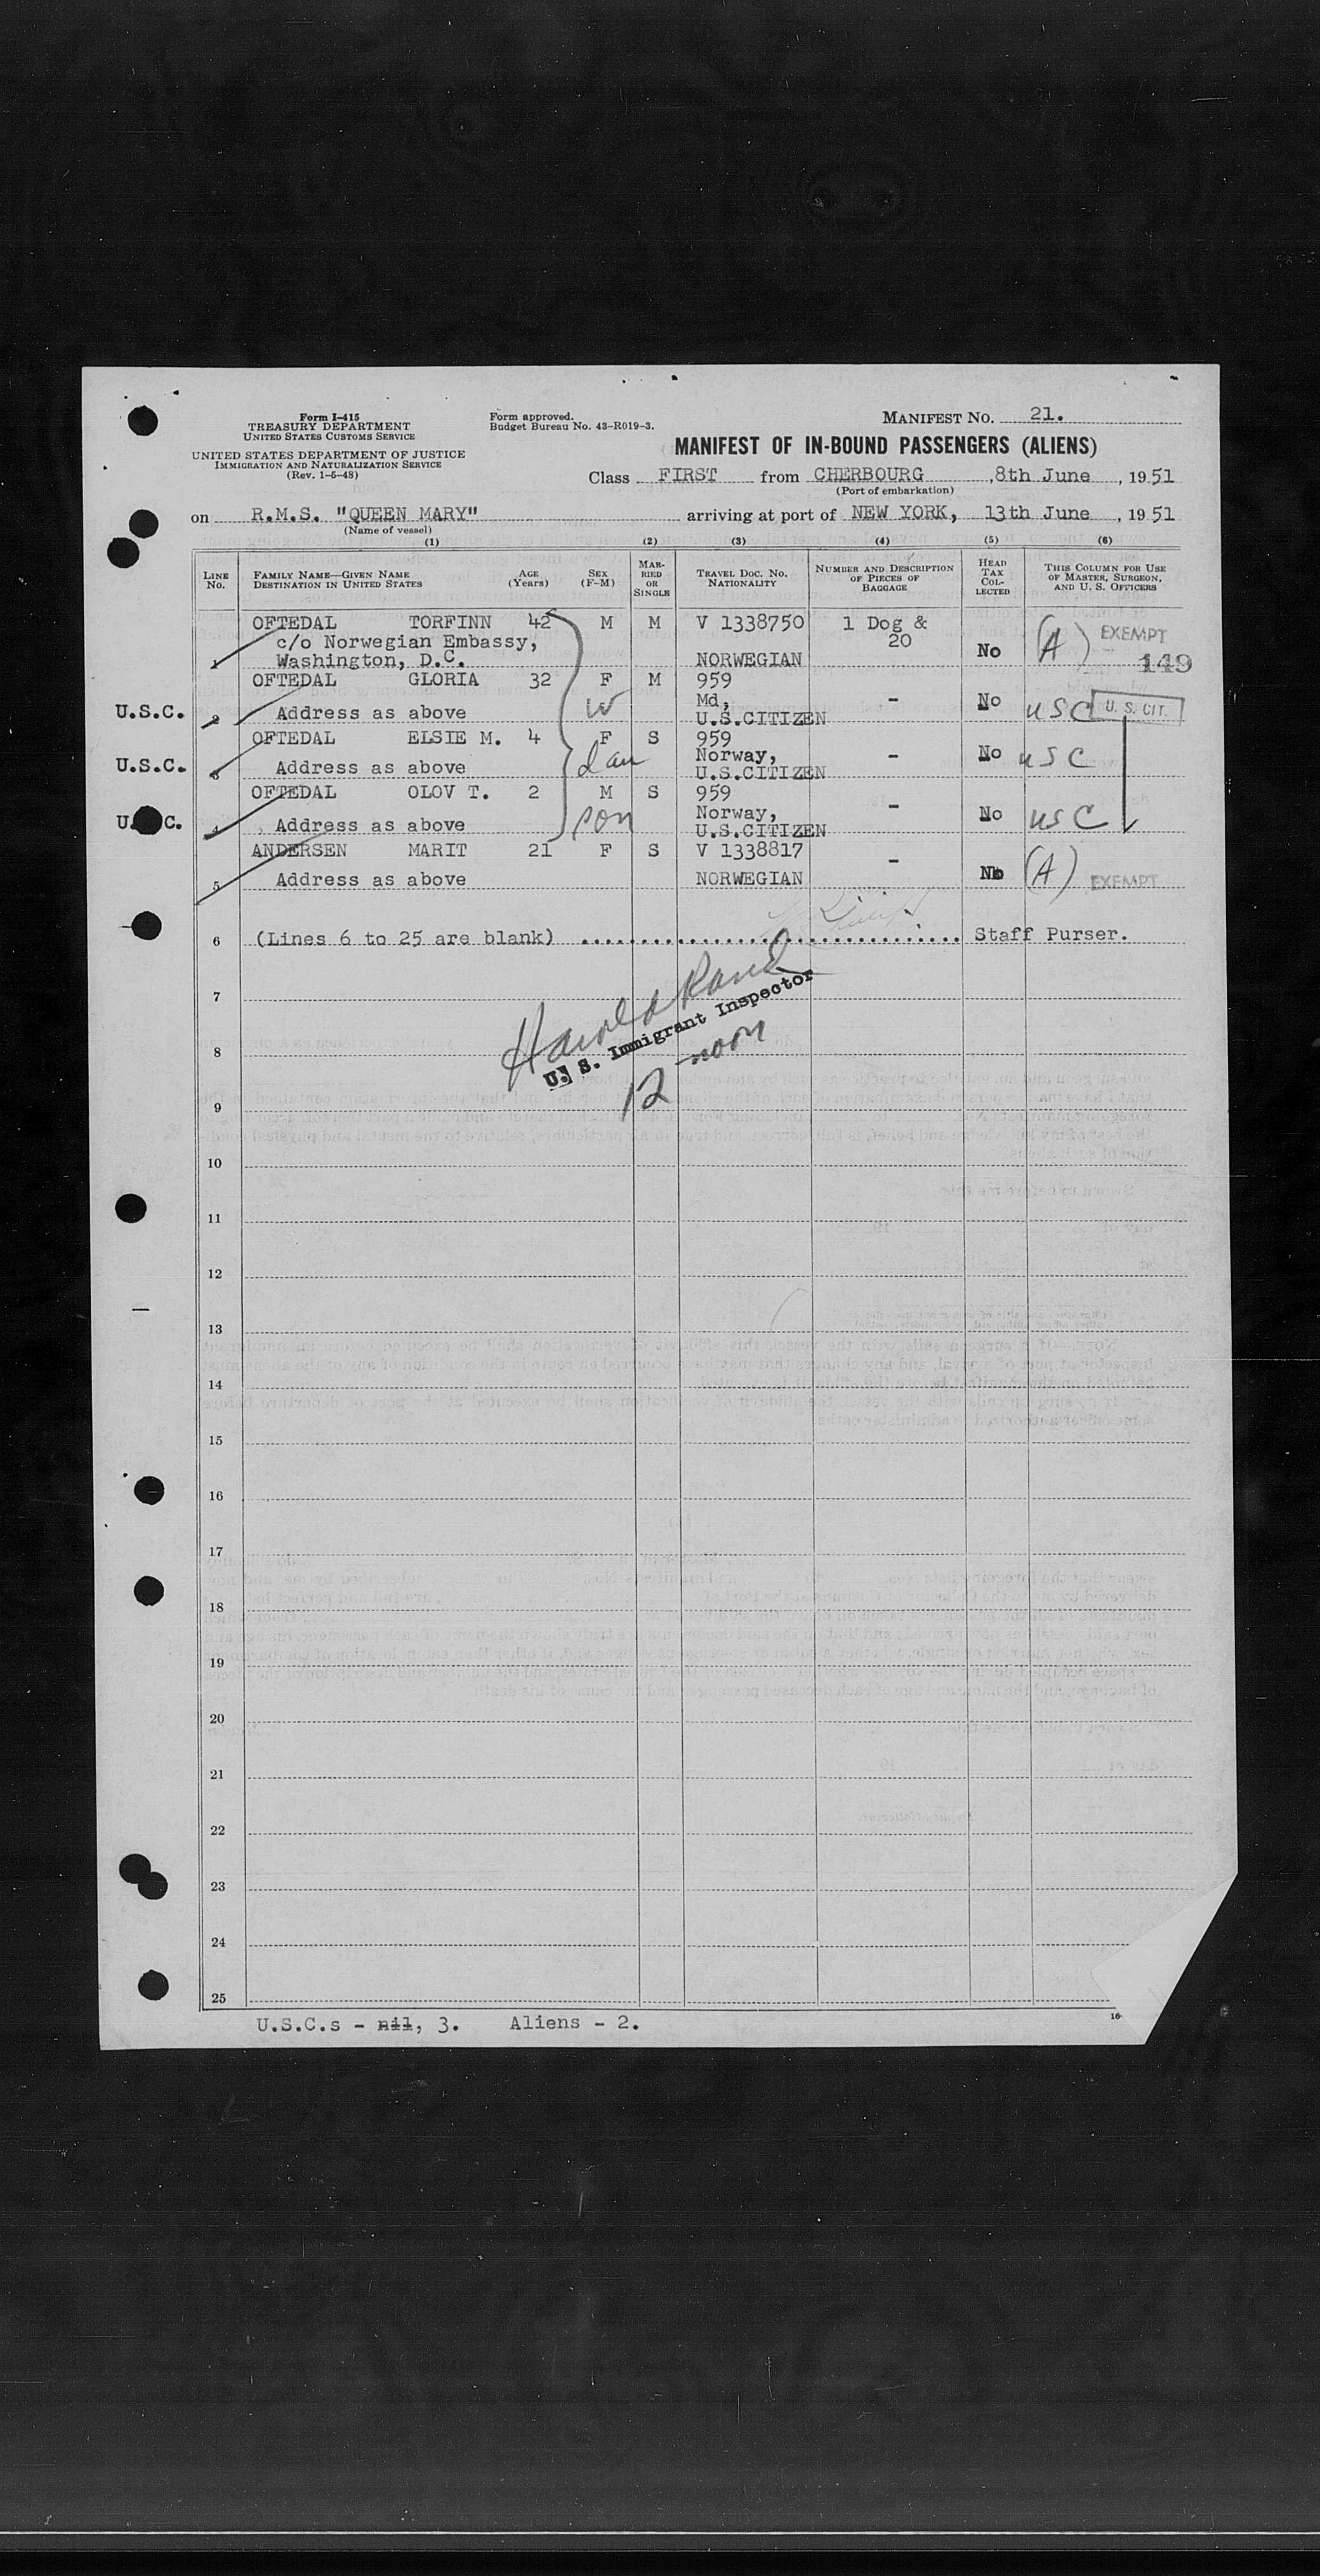 Form I-415
TREASURY DEPARTMENT
UNITED STATES CUSTOMS SERVICE
UNITED STATES DEPARTMENT OF JUSTICE
IMMIGRATION AND NATURALIZATION SERVICE
(Rev. 1-6-48)
Form approved.
Budget Bureau No. 43-R019-3.
MANIFEST NO. 21.
MANIFEST OF IN-BOUND PASSENGERS (ALIENS)
Class FIRST from CHERBOURG, 8th June, 1951
(Port of embarkation)
on R.M.S. "QUEEN MARY" arriving at port of NEW YORK, 13th June, 1951
(Name of vessel)
(1) (2) (3) (4) (5) (6)
LINE NO. FAMILY NAME—GIVEN NAME DESTINATION IN UNITED STATES AGE (Years) SEX (F-M) MARRIED OR SINGLE TRAVEL DOC. NO. NATIONALITY NUMBER AND DESCRIPTION OF PIECES OF BAGGAGE HEAD TAX COLLECTED THIS COLUMN FOR USE OF MASTER, SURGEON, AND U. S. OFFICERS
OFTEDAL TORFINN 42 M M V 1338750 1 Dog &
c/o Norwegian Embassy, 20 No (A) EXEMPT
1 Washington, D.C. NORWEGIAN 149
OFTEDAL GLORIA 32 F M 959
U.S.C. 2 Address as above W Md, - No USC U. S. CIT.
U.S.CITIZEN
OFTEDAL ELSIE M. 4 F S 959
U.S.C. 3 Address as above dau Norway, - No USC
U.S.CITIZEN
OFTEDAL OLOV T. 2 M S 959
U. C. 4 Address as above son Norway, - No USC
U.S.CITIZEN
ANDERSEN MARIT 21 F S V 1338817
5 Address as above NORWEGIAN - No (A) EXEMPT
6 (Lines 6 to 25 are blank) Staff Purser.
7
Harold Rand
U. S. Immigrant Inspector
8
12 noon
9
10
11
12
13
14
15
16
17
18
19
20
21
22
23
24
25
U.S.C.s - nil, 3. Aliens - 2.
16